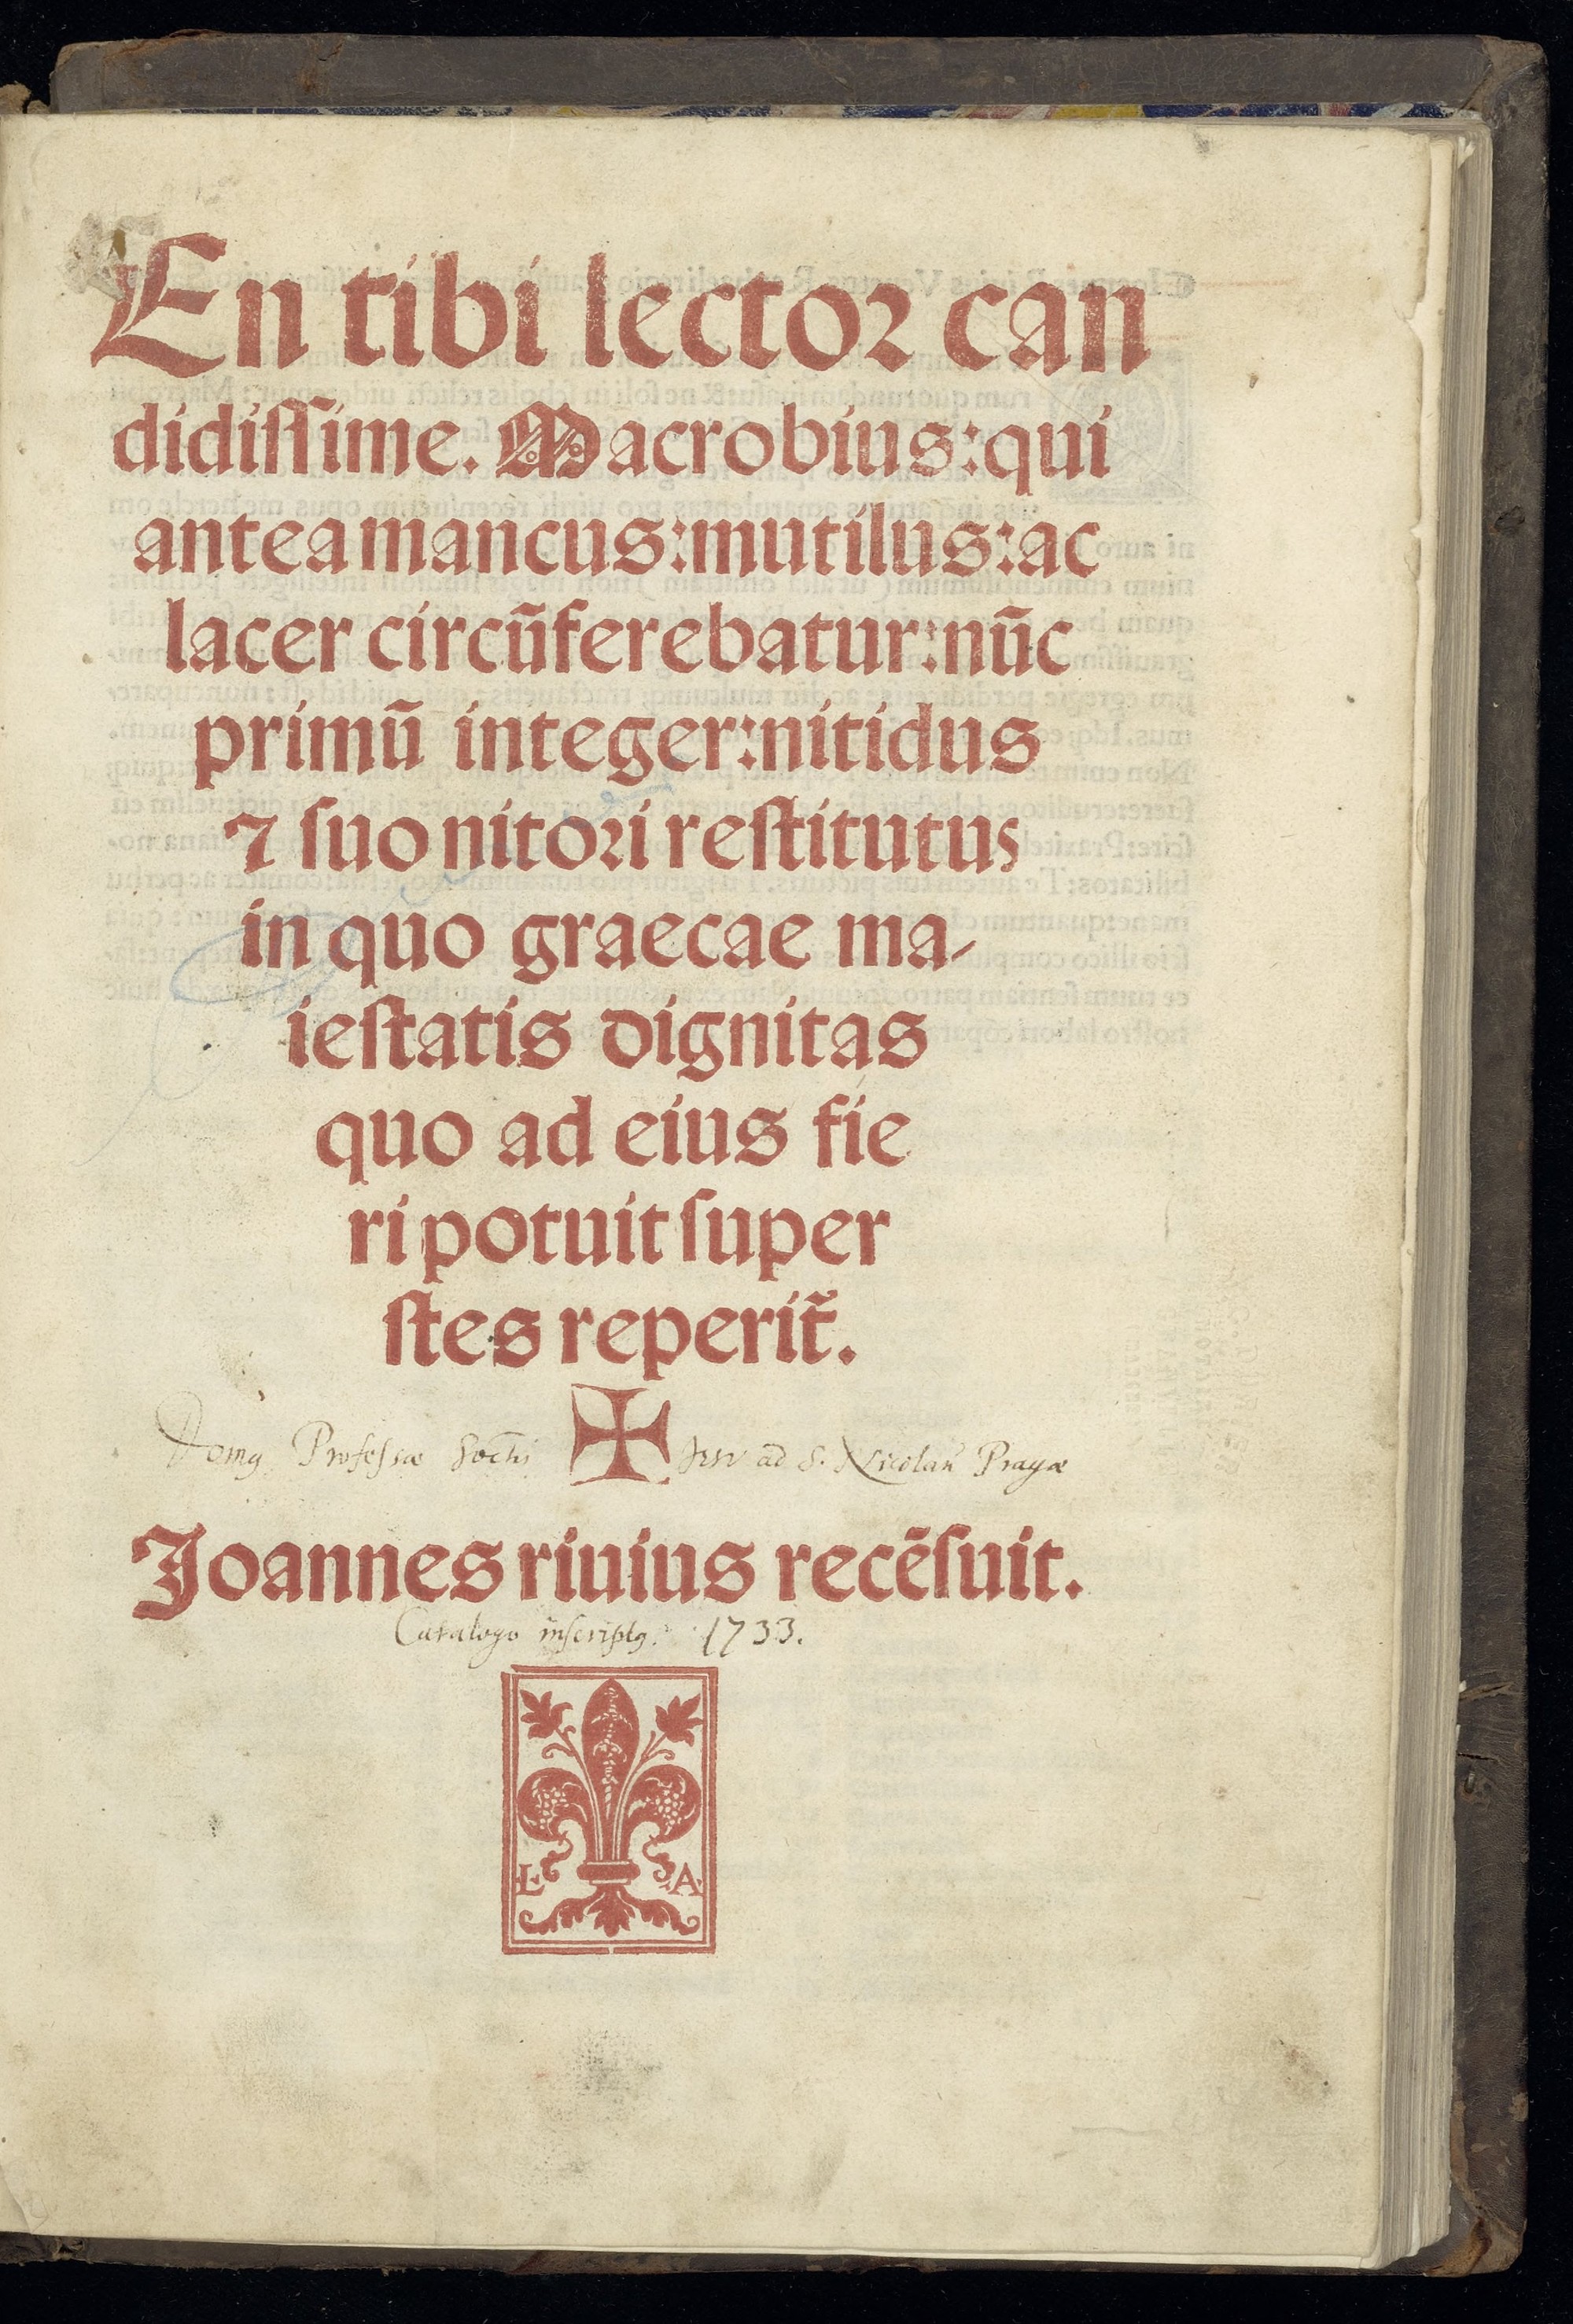 En tibi lector can
didissime. Macrobius: qui
antea mancus: mutilus: ac
lacer circūferebatur: nūc
primū integer: nitidus
⁊ suo nitori restitutus
in quo graecae ma-
iestatis dignitas
quo ad eius fie
ri potuit super
stes reperit̃.
Domꝰ Professæ Soctis Jesu ad S. Nicolaū Pragæ
Joannes riuius recēsuit.
Catalogo inscriptꝰ. 1733.
L A